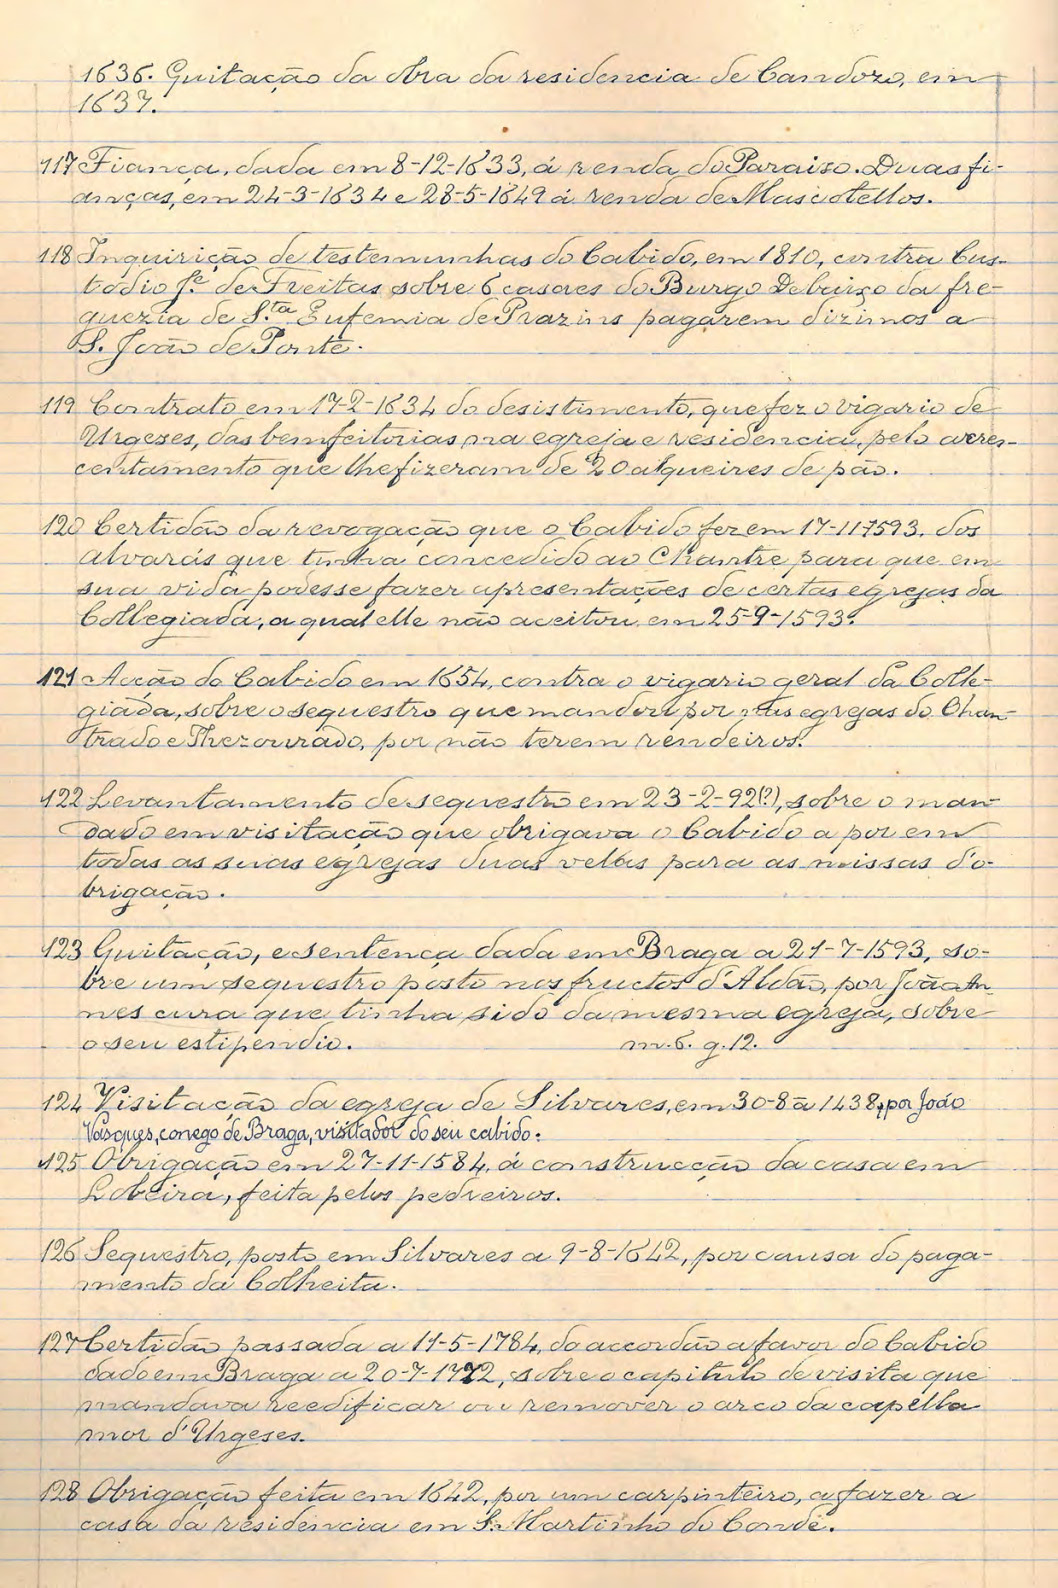 1636. Quitação da obra da residencia de Candozo, em
1637.
117 Fiança, dada em 8-12-1633, á renda do Paraizo. Duas fi-
anças, em 24-3-1634 e 28-5-1649 á renda de Mascotellos.
118 Inquirição de testemunhas do Cabido, em 1810, contra Cus-
todio Je. de Freitas sobre 6 casares do Burgo Debaixo da fre-
guezia de S.ta Eufemia de Prazins pagarem dizimos a
S. João de Ponte.
119 Contrato em 17-2-1634 do desistimento, que fez o vigario de
Urgezes, das bemfeitorias na egreja e residencia, pelo acres-
centamento que lhe fizeram de 20 alqueires de pão.
120 Certidão da revogação que o Cabido fez em 17-1-1593, dos
alvarás que tinha concedido ao Chantre para que em
sua vida podesse fazer apresentações de certas egrejas da
Collegiada, a qual elle não aceitou em 25-9-1593.
121 Acção do Cabido em 1654, contra o vigario geral da Colle-
giada, sobre o sequestro que mandou por nas egrejas do Chan-
trado e Thezourado, por não terem rendeiros.
122 Levantamento de sequestro em 23-2-92(?), sobre o man-
dado em visitação que obrigava o Cabido a por em
todas as suas egrejas duas vellas para as missas d'o-
brigação.
123 Quitação, e sentença dada em Braga a 21-7-1593, so-
bre um sequestro posto nos fructos d'Aldão, por João An-
nes cura que tinha sido da mesma egreja, sobre
o seu estipendio. m. 6. g. 12.
124 Visitação da egreja de Silvares, em 30-8-a 1438, por João
Vasques, conego de Braga, visitador do seu cabido.
125 Obrigação em 27-11-1584, á construcção da casa em
Lobeira, feita pelos pedreiros.
126 Sequestro, posto em Silvares a 9-8-1642, por causa do paga-
mento da Colheita.
127 Certidão passada a 11-5-1784, do accordão a favor do Cabido
dado em Braga a 20-7-1772, sobre o capitulo de visita que
mandava reedificar ou remover o arco da capella
mor d'Urgeses.
128 Obrigação feita em 1642, por um carpinteiro, a fazer a
casa da residencia em S. Martinho do Conde.